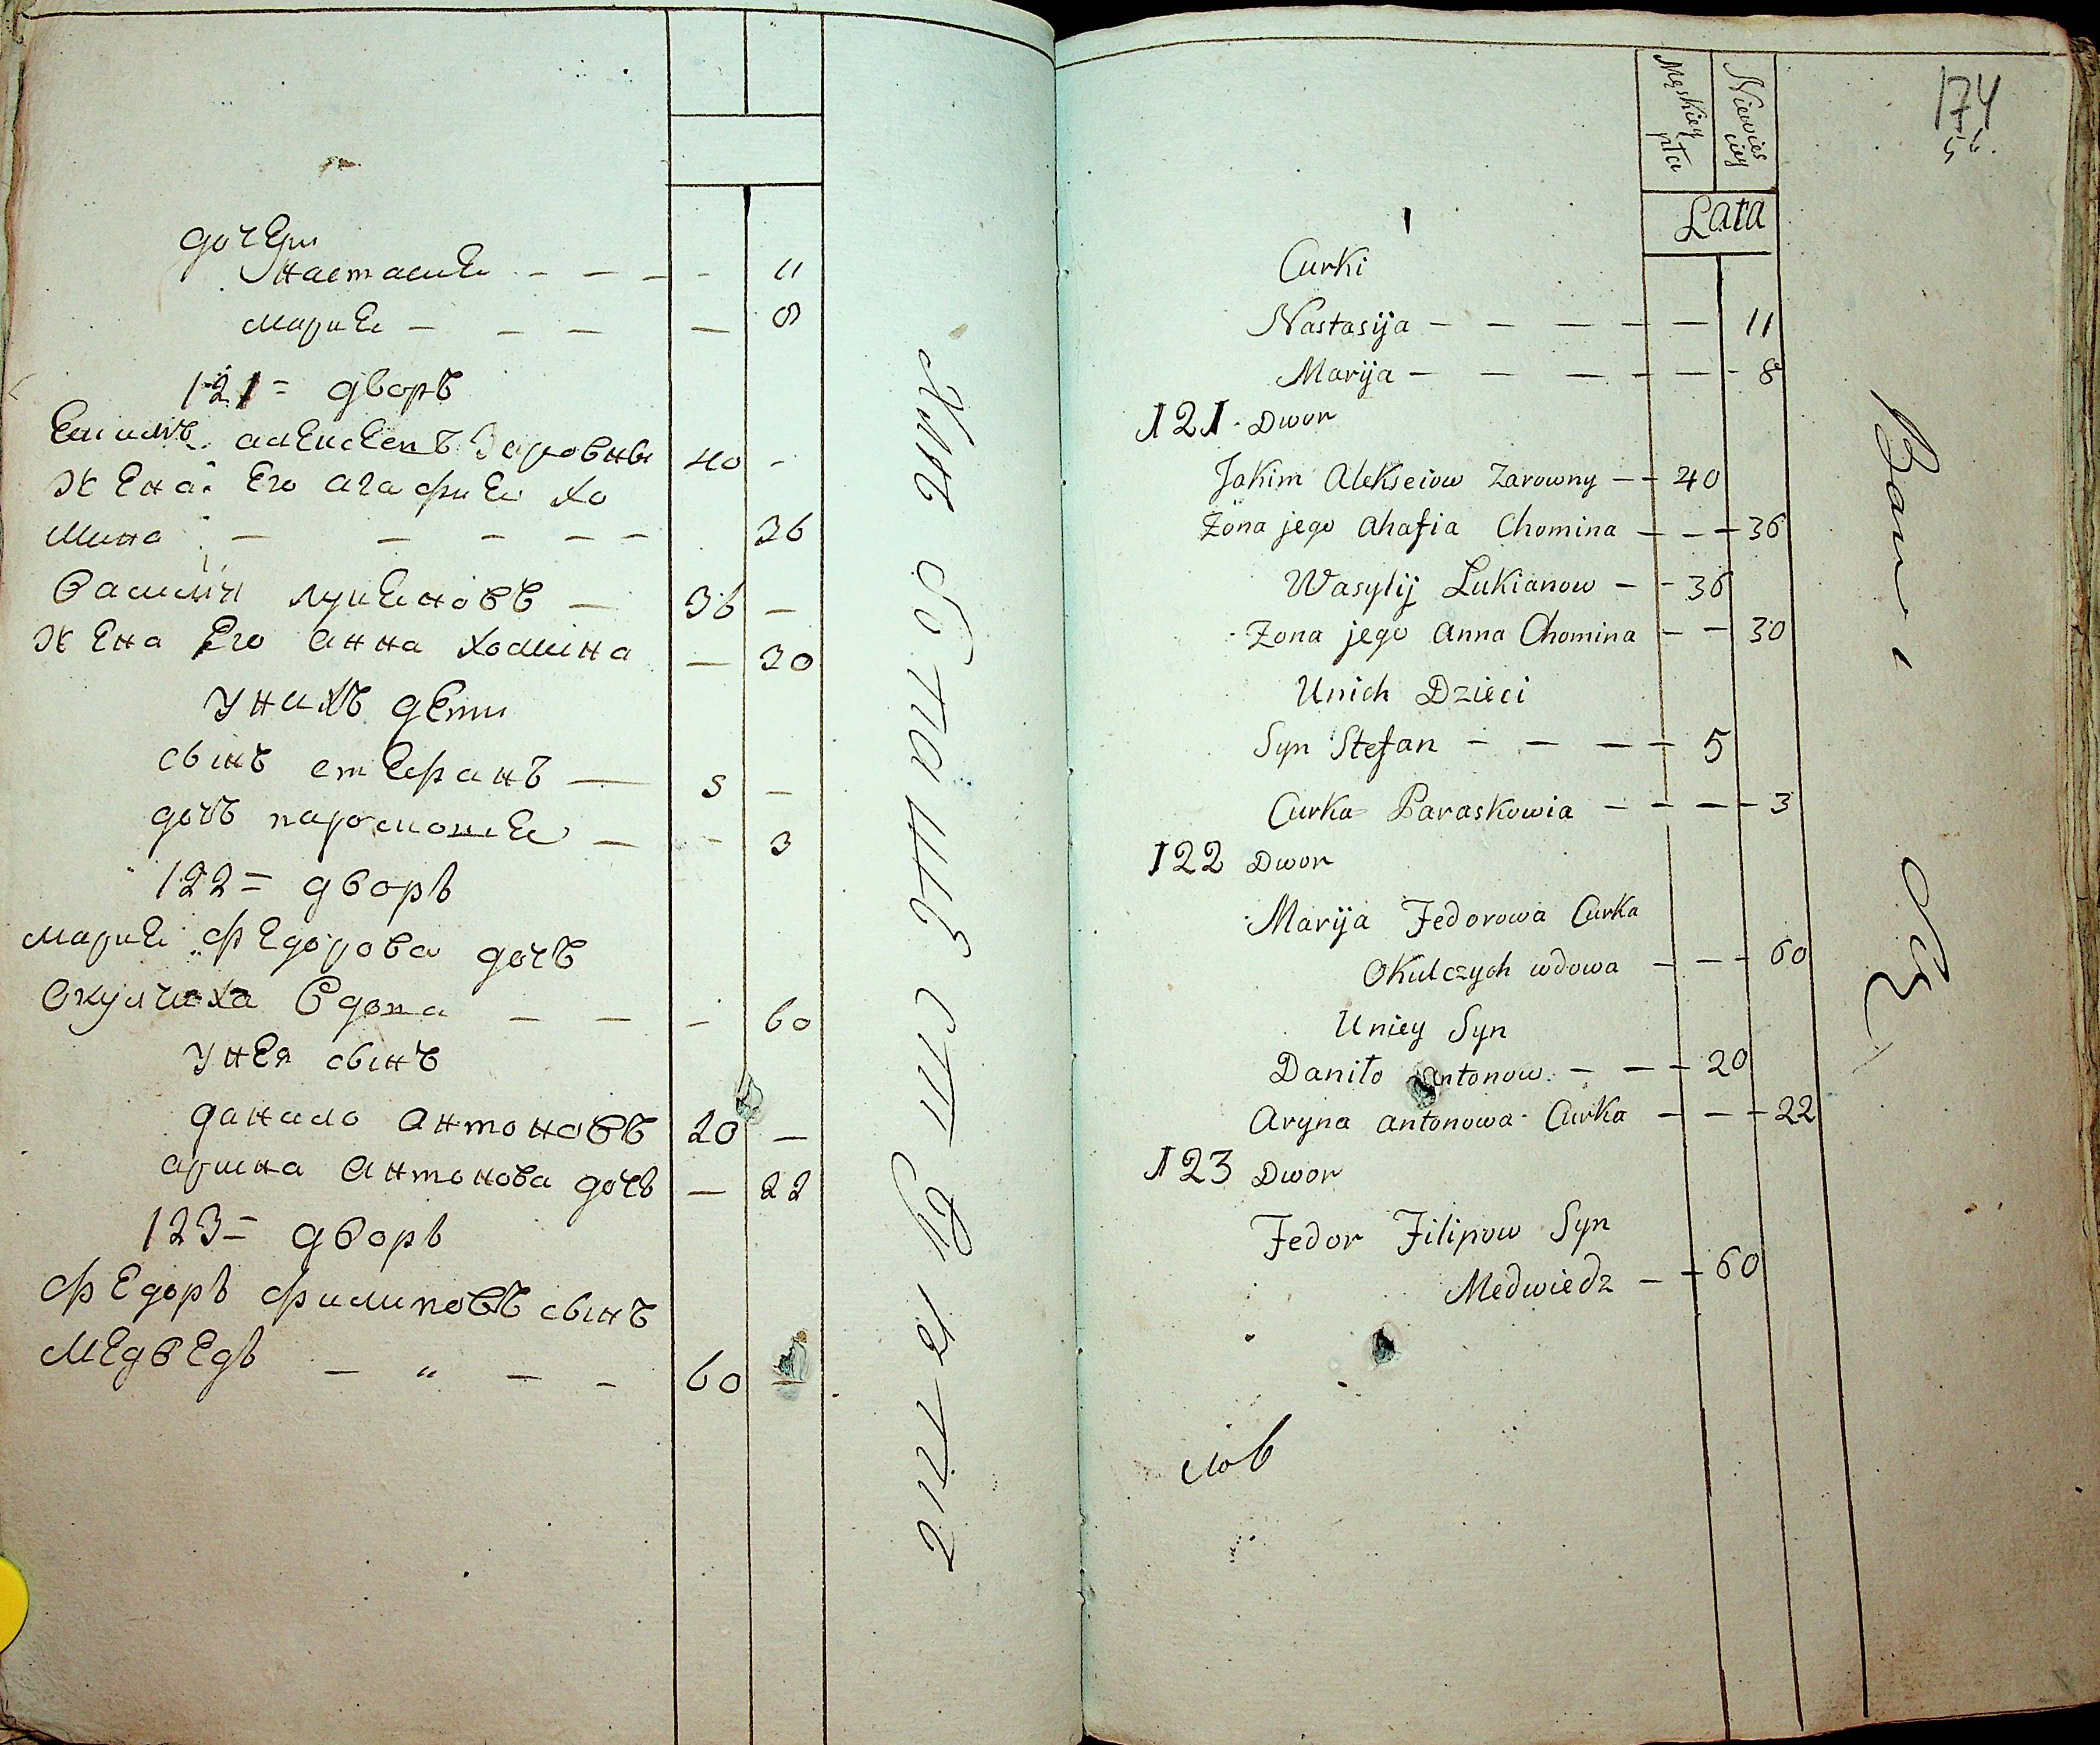 дочери
Настасия — — — — 11
мария — — — — 8
121 = дворъ
Екимъ алексеевъ Заровны 40 -
Жена Его агафия хо
мина — — — — — 36
Василий лукяновъ — 36 —
Жена Его анна хомина — 30
У нихъ дети
сынъ стефанъ — 5 —
дочъ — - 3
122 = дворъ
мария федорова дочъ
Окулчиха вдова — — — 60
У нея сынъ
данило антоновъ 20 —
арина антонова дочъ — 22
123 = дворъ
федоръ филиповъ сынъ
Медведъ — " — - 60 —
174
Męskiey płci
Niewiesciey
Lata
Curki
Nastasija — — — — — 11
Marija — — — — — - 8
121. Dwor
Jakim Alekseiow Zarowny — — 40
Zona jego Ahafia Chomina — — — 36
Wasylij Lukianow — - 36
Zona jego Anna Chomina — — 30
Unich Dzieci
Syn Stefan - — — — 5
Curka Paraskowia — — — — 3
122 Dwor
Marija Fedorowa Curka
Okulczych wdowa — — — 60
Uniey Syn
Daniło Antonow. — — — 20
Aryna Antonowa Curka — — — 22
123 Dwor
Fedor Filipow Syn
Medwiedz — — 60